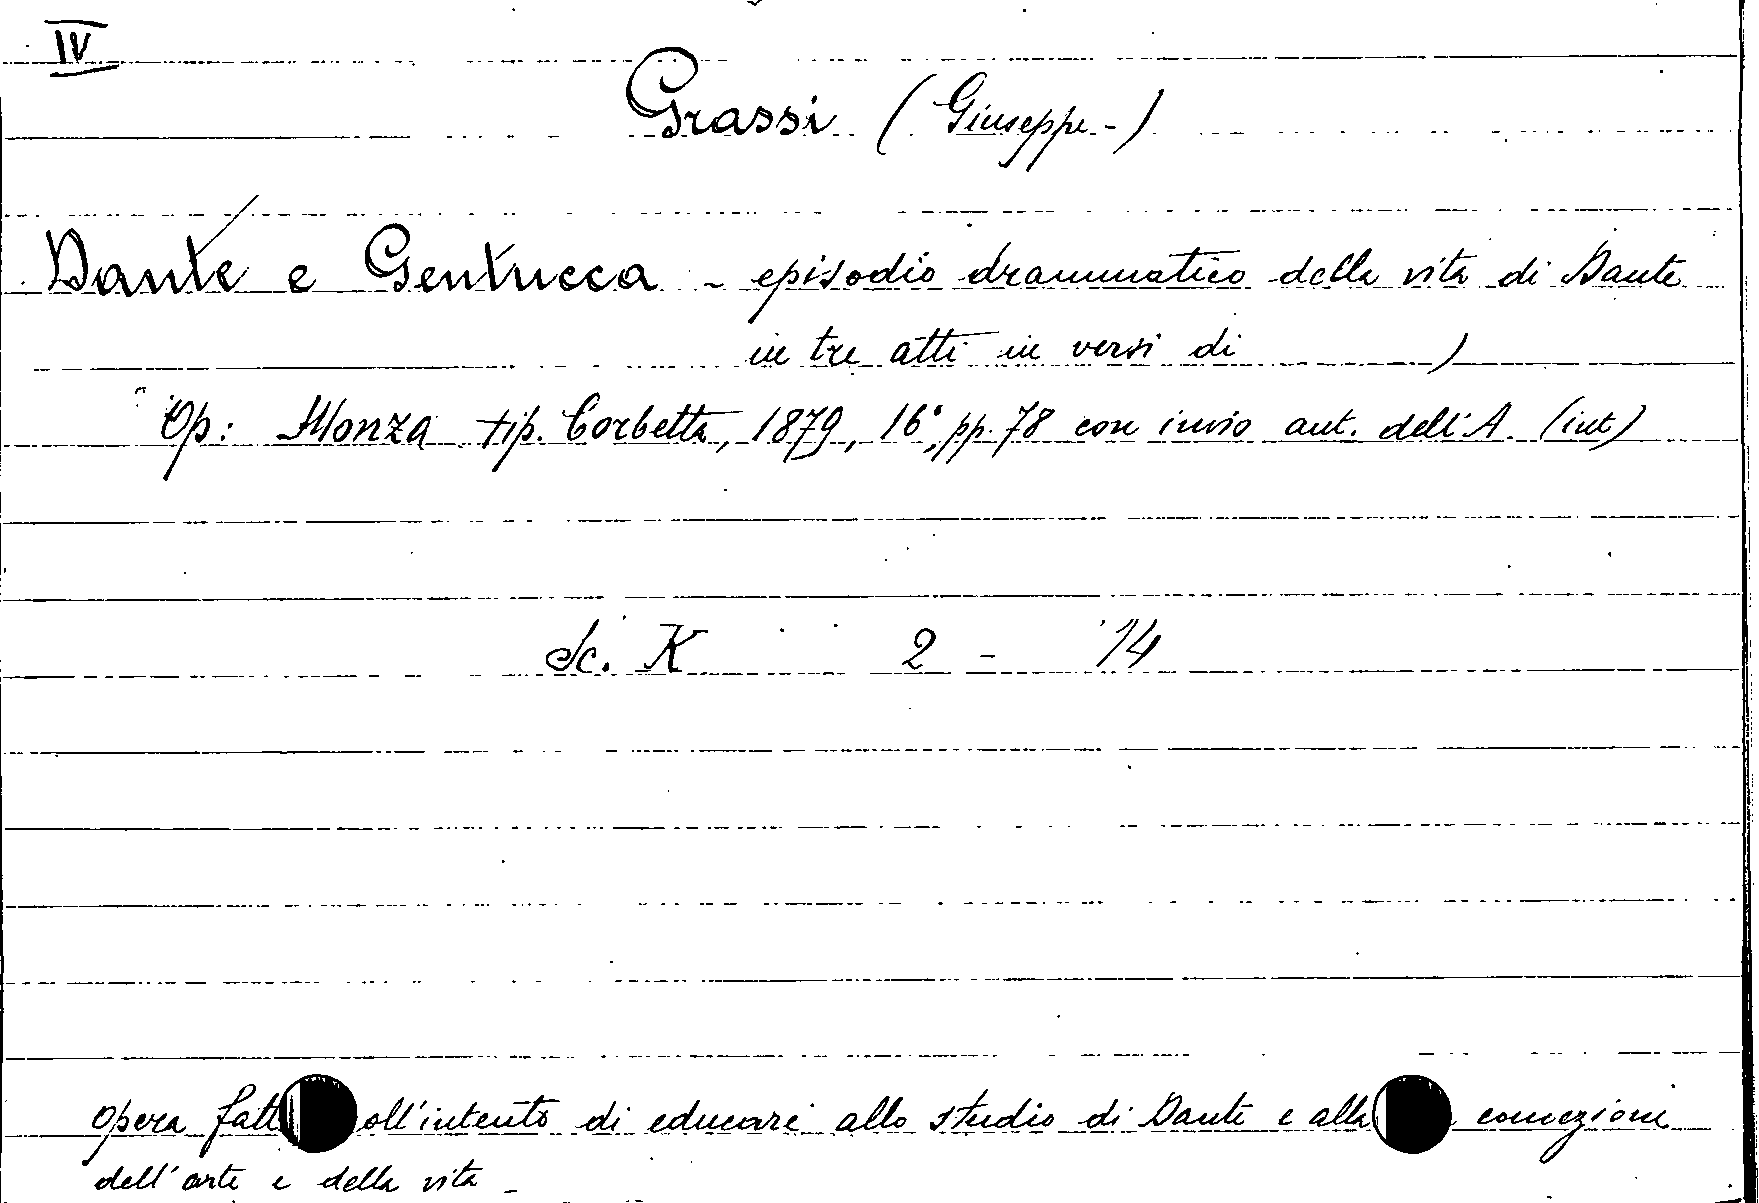 IV
Grassi (Giuseppe-)
Dante e Gentucca - episodio drammatico della vita di Dante
in tre atti in versi di )
Op: Monza tip. Corbetta, 1879, 16°, pp. 78 con invio aut. dell'A. (int)
Sc. K 2 - 14
Opera fatt oll'intento di educare allo studio di Dante e alla concezione
dell'arte e della vita -